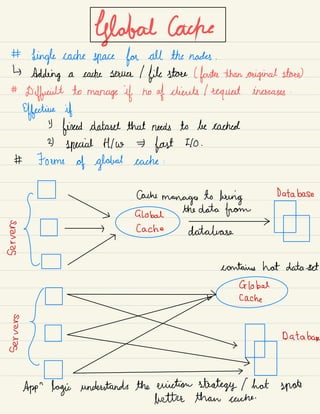 Global Cache
# Single cache space for all the nodes.
↳ Adding a cache server / file store (faster than original store)
# Difficult to manage if no of clients / request increases.
Effective if
1) fixed dataset that needs to be cached
2) special H/w ⇒ fast I/O.
# Forms of global cache.
Cache manages to bring
the data from
database
Database
Servers
Global
Cache
contains hot data-set
Global
Cache
Servers
Database
Appⁿ logic understands the eviction strategy / hot spots
better than cache.